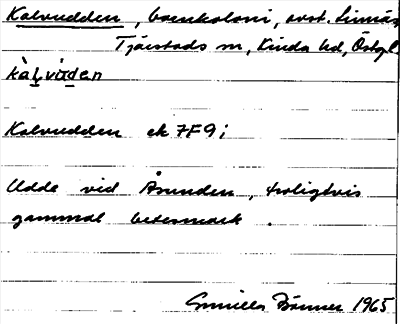 Kalvudden, barnkoloni, avst. Linnäs,
Tjärstads sn, Kinda hd, Östgl.
kàlvu̇den
Kalvudden ek 7F9i
Udde vid Åsunden, troligtvis
gammal betesmark.
Gunilla Bänner 1965